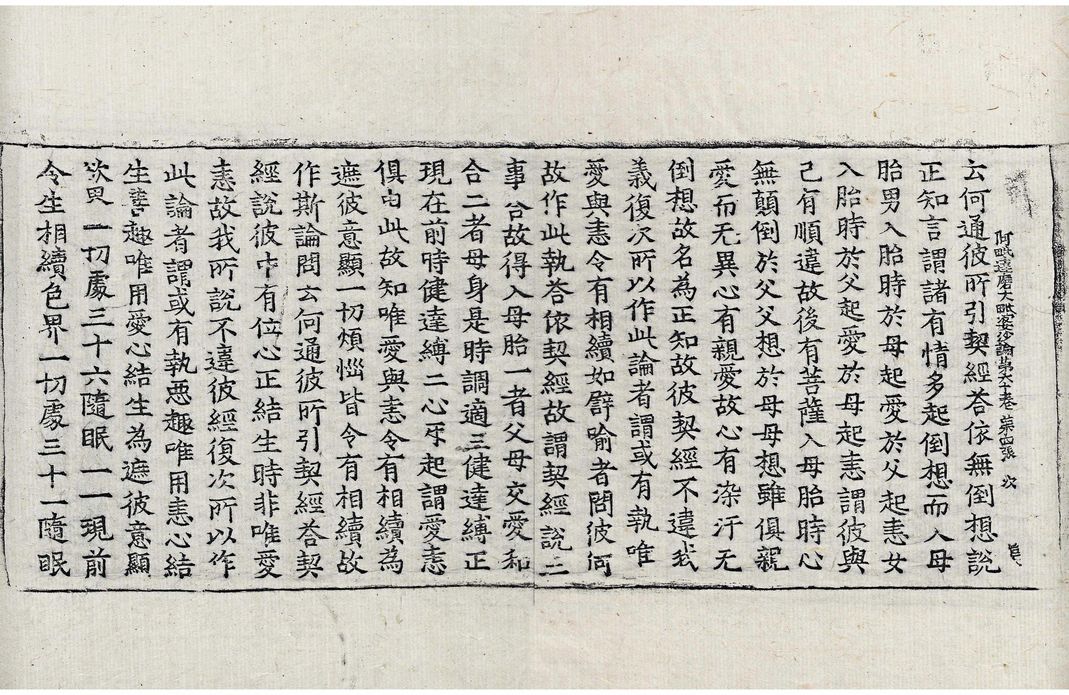 阿毗達磨大毗婆沙論第六十卷 第四張 次
云何通彼所引契經荅依無倒想說
正知言謂諸有情多起倒想而入母
胎男入胎時於母起愛於父起恚女
入胎時於父起愛於母起恚謂彼與
己有順違故後有菩薩入母胎時心
無顛倒於父父想於母母想雖俱親
愛而无異心有親愛故心有染汙无
倒想故名為正知故彼契經不違我
義復次所以作此論者謂或有執唯
愛與恚令有相續如譬喻者問彼何
故作此執荅依契經故謂契經說三
事合故得入母胎一者父母交愛和
合二者母身是時調適三健達縛正
現在前時健達縛二心互起謂愛恚
俱由此故知唯愛與恚令有相續為
遮彼意顯一切煩惱皆令有相續故
作斯論問云何通彼所引契經荅契
經說彼中有位心正結生時非唯愛
恚故我所說不違彼經復次所以作
此論者謂或有執惡趣唯用恚心結
生善趣唯用愛心結生為遮彼意顯
欲界一切處三十六隨眠一一現前
令生相續色界一切處三十一隨眠